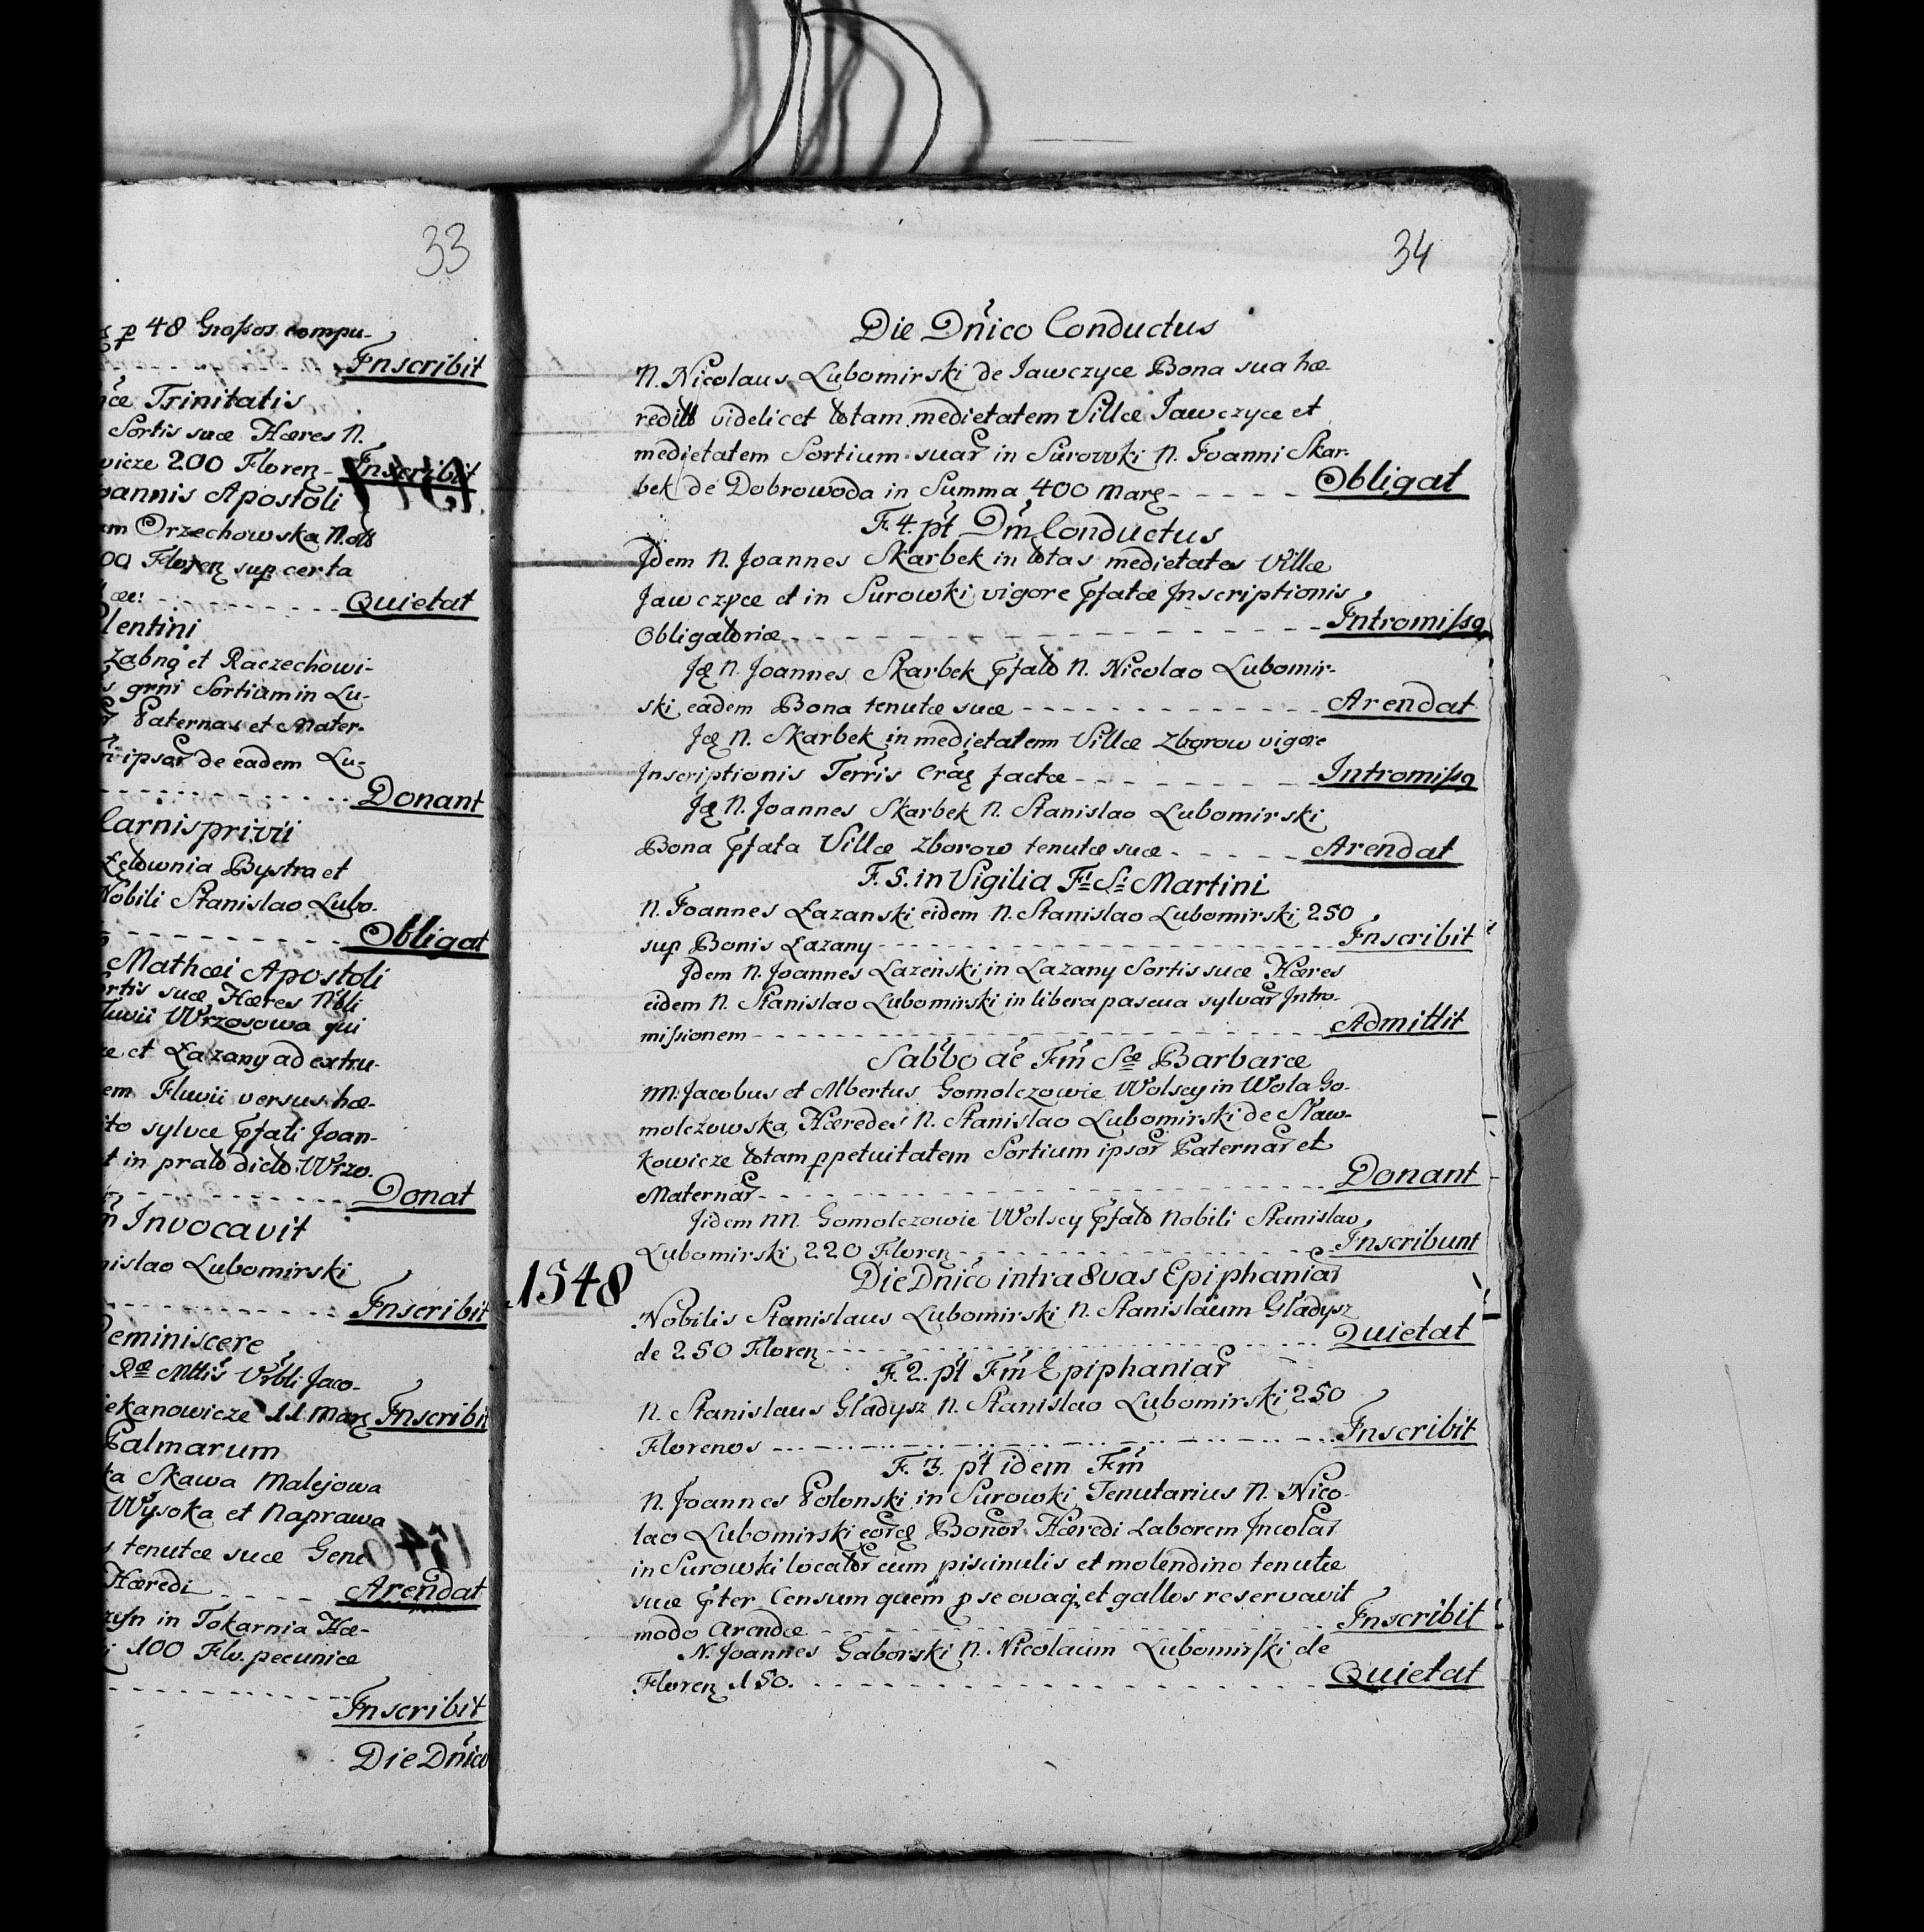 33
ꝑ 48 Grossos compu-
Inscribit
Trinitatis
Sortis suæ Hæres N.
wicze 200 Floren - Inscribit
oannis Apostoli
am Orzechowska N. ols
00 Floren sup certa
æ: - - - - Quietat
lentini
Zabno et Raczechowi-
s grni Sortium in Lu-
Paternas et Mater-
ipsar de eadem Lu-
Donant
Carnisprivii
Łętownia Bystra et
Nobili Stanislao Lubo-
Obligat
Mathæi Apostoli
ortis suæ Hæres Nbli
Fluvii Wrzosowa qui
ze et Łazany ad extru-
em Fluvii versus hæ-
ito sylvæ pfati Joan-
t in prato dicto Wrzo-
Donat
Invocavit
nislao Lubomirski
Inscribit
Reminiscere
Ræ Mttis Vrbli Jaco-
iekanowicze 11 Marc Inscribit
Palmarum
ka Skawa Malejowa
Wysoka et Naprawa
s tenutæ suæ Gene
Hæredi - - - - Arendat
in Tokarnia Hæ-
i 100 Flo. pecuniæ
Inscribit
Die Dnico
34
Die Dnico Conductus
N. Nicolaus Lubomirski de Jawczyce Bona sua hæ-
redit videlicet totam medietatem Villæ Jawczyce et
medietatem Sortium suar in Surowki N. Joanni Skar-
bek de Dobrowoda in Summa 400 Marc - - - - - Obligat
F. 4. pt Dm Conductus
Idem N. Joannes Skarbek in totas medietates Villæ
Jawczyce et in Surowki vigore pfatæ Inscriptionis
Obligatoriæ - - - - Intromissq
Id N. Joannes Skarbek pfato N. Nicolao Lubomir-
ski eadem Bona tenutæ suæ - - - - Arendat
Id N. Skarbek in medietatem Villæ Zborow vigore
Inscriptionis Terris Crac factæ - - - - Intromissq
Id N. Joannes Skarbek N. Stanislao Lubomirski
Bona pfata Villæ Zborow tenutæ suæ - - - - - Arendat
F. 5. in Vigilia Fi Si Martini
N. Joannes Łazanski eidem N. Stanislao Lubomirski 250
sup Bonis Łazany - - - - Inscribit
Idem N. Joannes Lazenski in Lazany Sortis suæ Hæres
eidem N. Stanislao Lubomirski in libera pascua sylvar Intro-
missionem - - - - Admittit
Sabbo ae Fm Scæ Barbaræ
NN. Jacobus et Albertus Gomolczowie Wolscy in Wola Go-
molczowska Hæredes N. Stanislao Lubomirski de Sław-
kowicze totam ppetuitatem Sortium ipsor Paternar et
Maternar - - - - Donant
Iidem NN. Gomolczowie Wolscy pfato Nobili Stanislao
Lubomirski 220 Floren - - - - Inscribunt
1548
Die Dnico intra 8vas Epiphaniar
Nobilis Stanislaus Lubomirski N. Stanislaum Gładysz
de 250 Floren - - - - Quietat
F. 2. pt Fm Epiphaniar
N. Stanislaus Gładysz N. Stanislao Lubomirski 250
Florenos - - - - Inscribit
F. 3. pt idem Fm
N. Joannes Polonski in Surowki Tenutarius N. Nico-
lao Lubomirski eorq Bonor Hæredi Laborem Incolar
in Surowki locator cum piscinulis et molendino tenutæ
suæ pter Censum quem p se ovaq et gallos reservavit
modo arendæ - - - - Inscribit
N. Joannes Gaborski N. Nicolaum Lubomirski de
Floren 150. - - - - Quietat